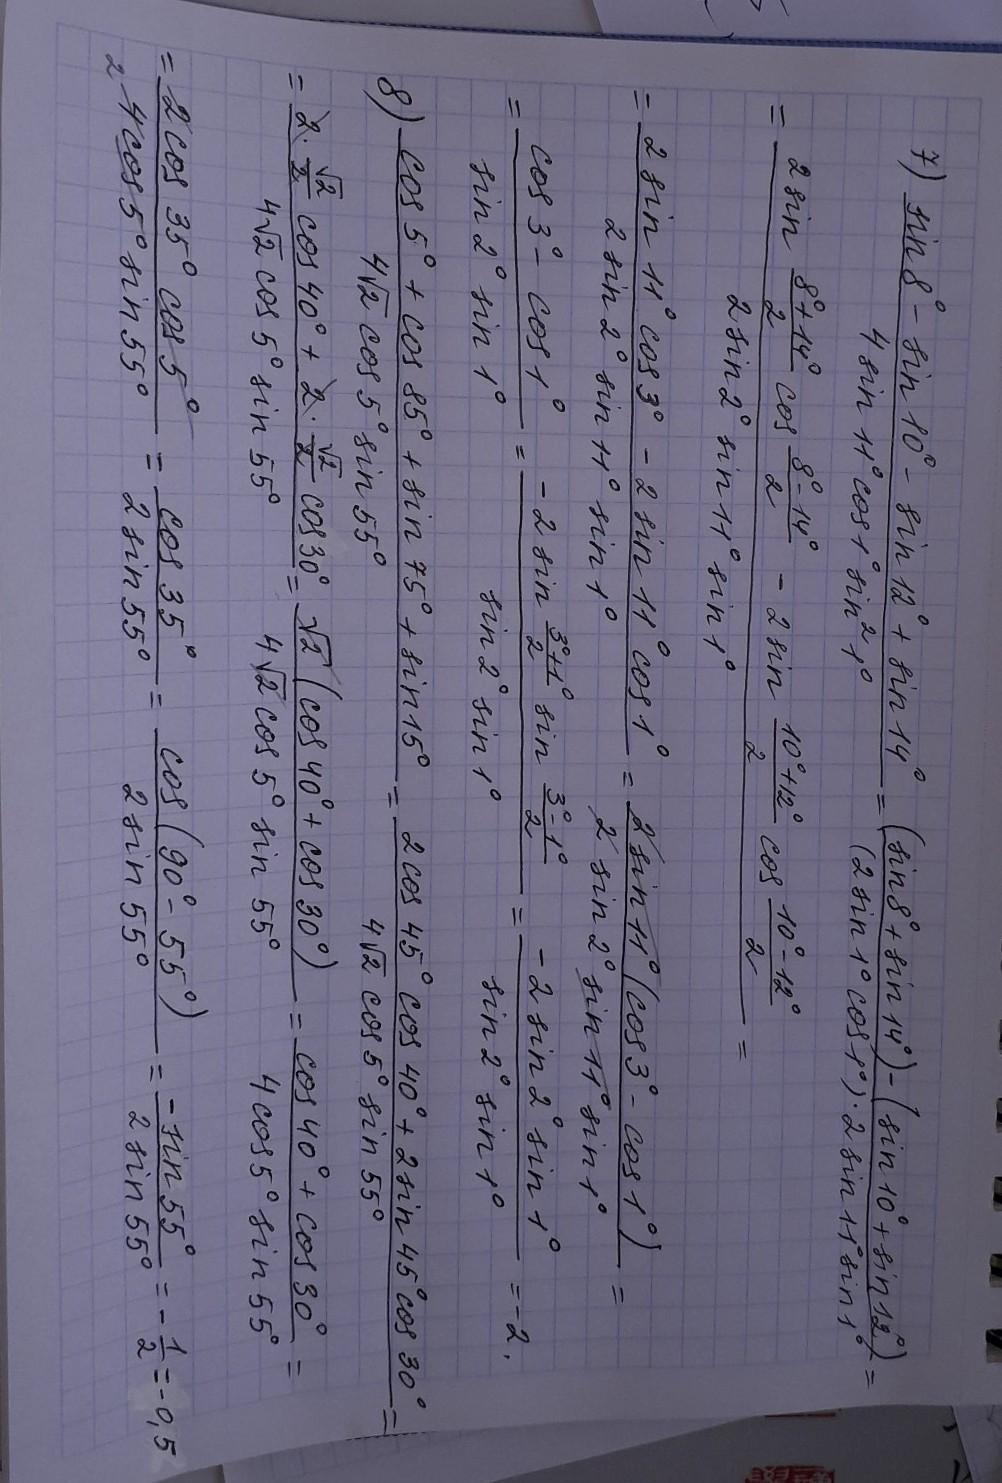 7) (sin 8° - sin 10° - sin 12° + sin 14°) / (4 sin 11° cos 1° sin² 1°) = ((sin 8° + sin 14°) - (sin 10° + sin 12°)) / ((2 sin 1° cos 1°) · 2 sin 11° sin 1°) =
= (2 sin (8° + 14°)/2 cos (8° - 14°)/2 - 2 sin (10° + 12°)/2 cos (10° - 12°)/2) / (2 sin 2° sin 11° sin 1°) =
= (2 sin 11° cos 3° - 2 sin 11° cos 1°) / (2 sin 2° sin 11° sin 1°) = (2 sin 11° (cos 3° - cos 1°)) / (2 sin 2° sin 11° sin 1°) =
= (cos 3° - cos 1°) / (sin 2° sin 1°) = (-2 sin (3° + 1°)/2 sin (3° - 1°)/2) / (sin 2° sin 1°) = (-2 sin 2° sin 1°) / (sin 2° sin 1°) = -2.
8) (cos 5° + cos 85° + sin 75° + sin 15°) / (4√2 cos 5° sin 55°) = (2 cos 45° cos 40° + 2 sin 45° cos 30°) / (4√2 cos 5° sin 55°) =
= (2 · √2/2 cos 40° + 2 · √2/2 cos 30°) / (4√2 cos 5° sin 55°) = (√2 (cos 40° + cos 30°)) / (4√2 cos 5° sin 55°) = (cos 40° + cos 30°) / (4 cos 5° sin 55°) =
= (2 cos 35° cos 5°) / (4 2 cos 5° sin 55°) = (cos 35°) / (2 sin 55°) = (cos (90° - 55°)) / (2 sin 55°) = (- sin 55°) / (2 sin 55°) = -1/2 = -0,5